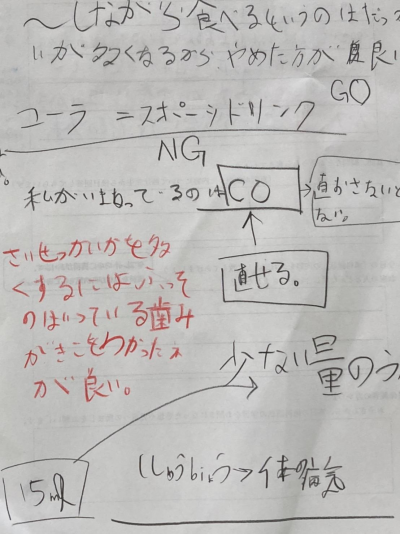 〜しながら食べるというのはだっ
いが多くなるから、やめた方が良い
GO
コーラ＝スポーツドリンク
NG
私がいまなっているのは CO → 直おさないと
ない。
直せる。
さいせっかいかを多
くするにはふっそ
のはいっている歯み
がきこをつかったみ
が良い。
少ない量のう
15ml
ししゅうびょう→体の病気